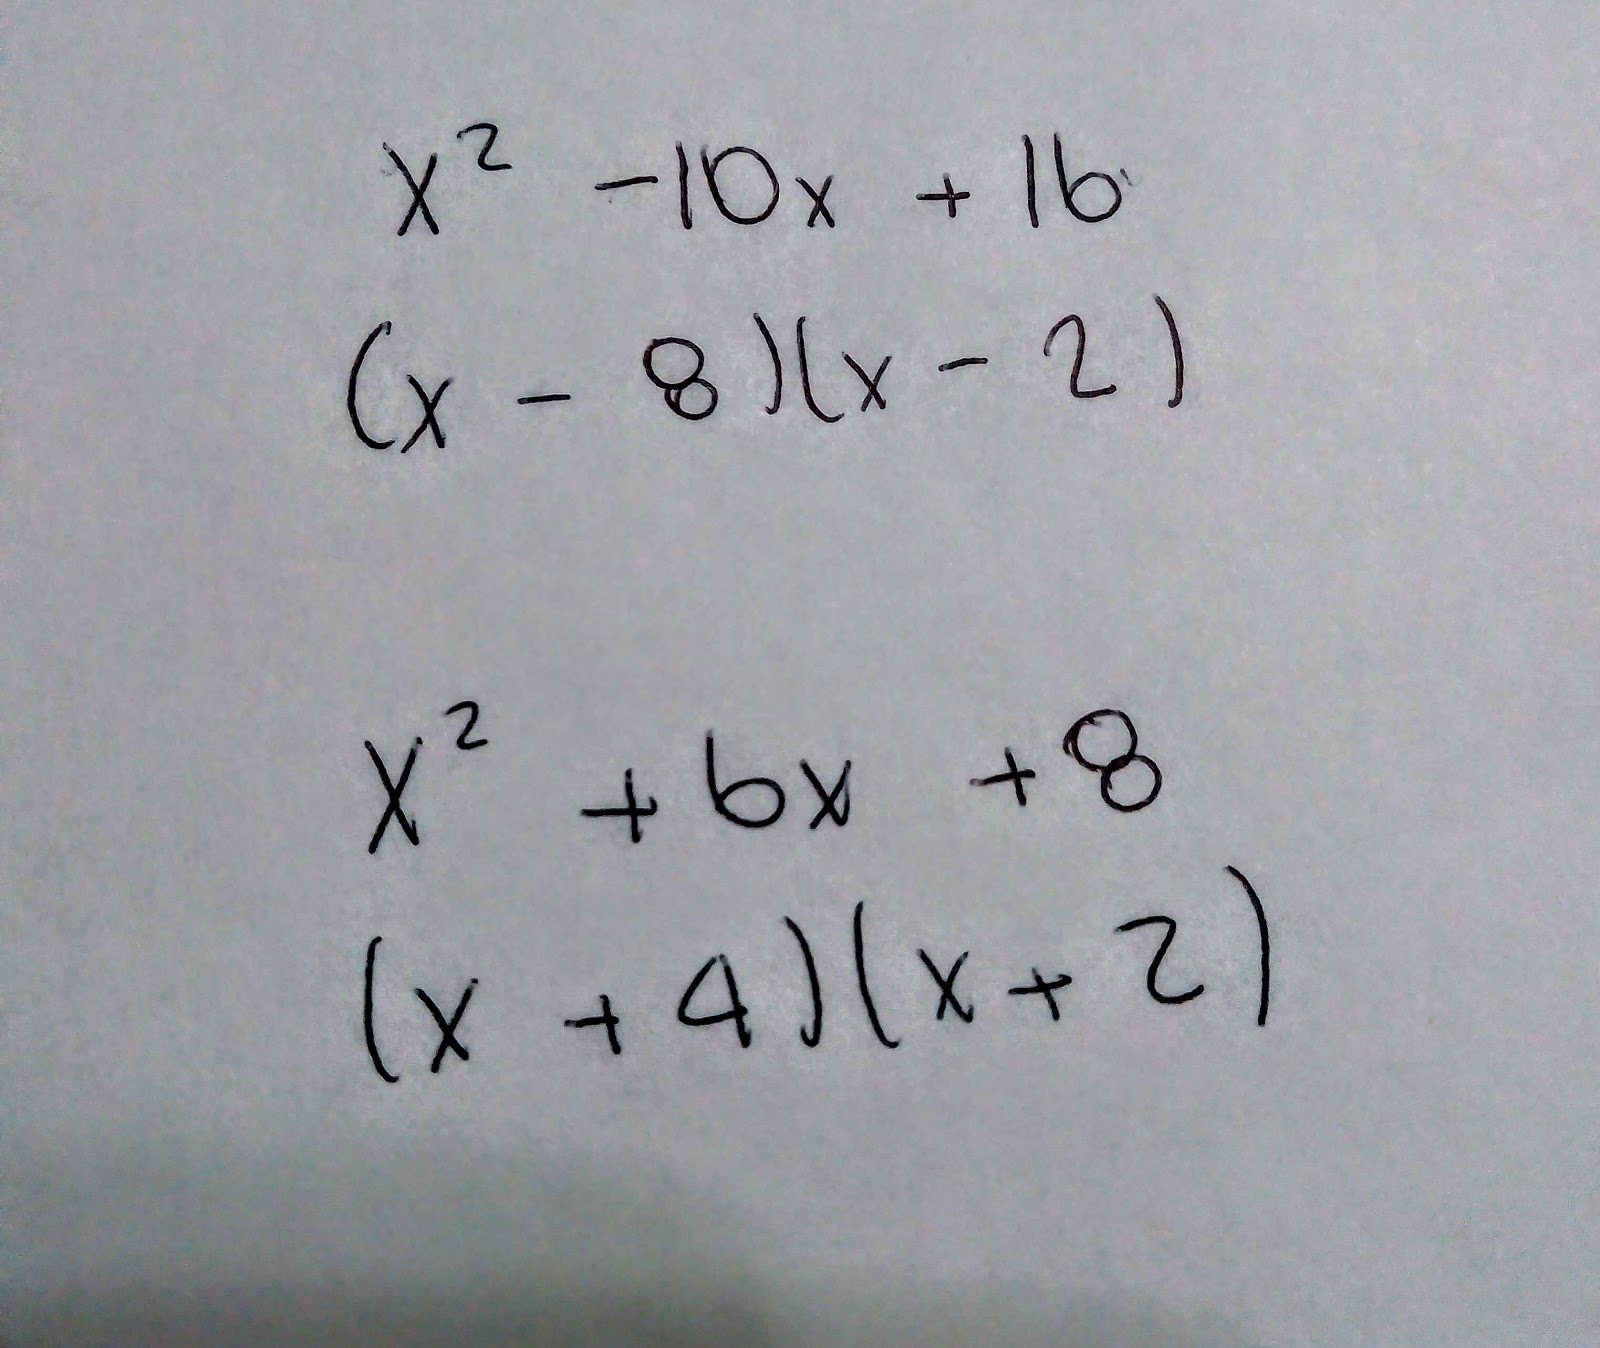 x² -10x + 16
(x - 8)(x - 2)
x² + 6x + 8
(x + 4)(x + 2)